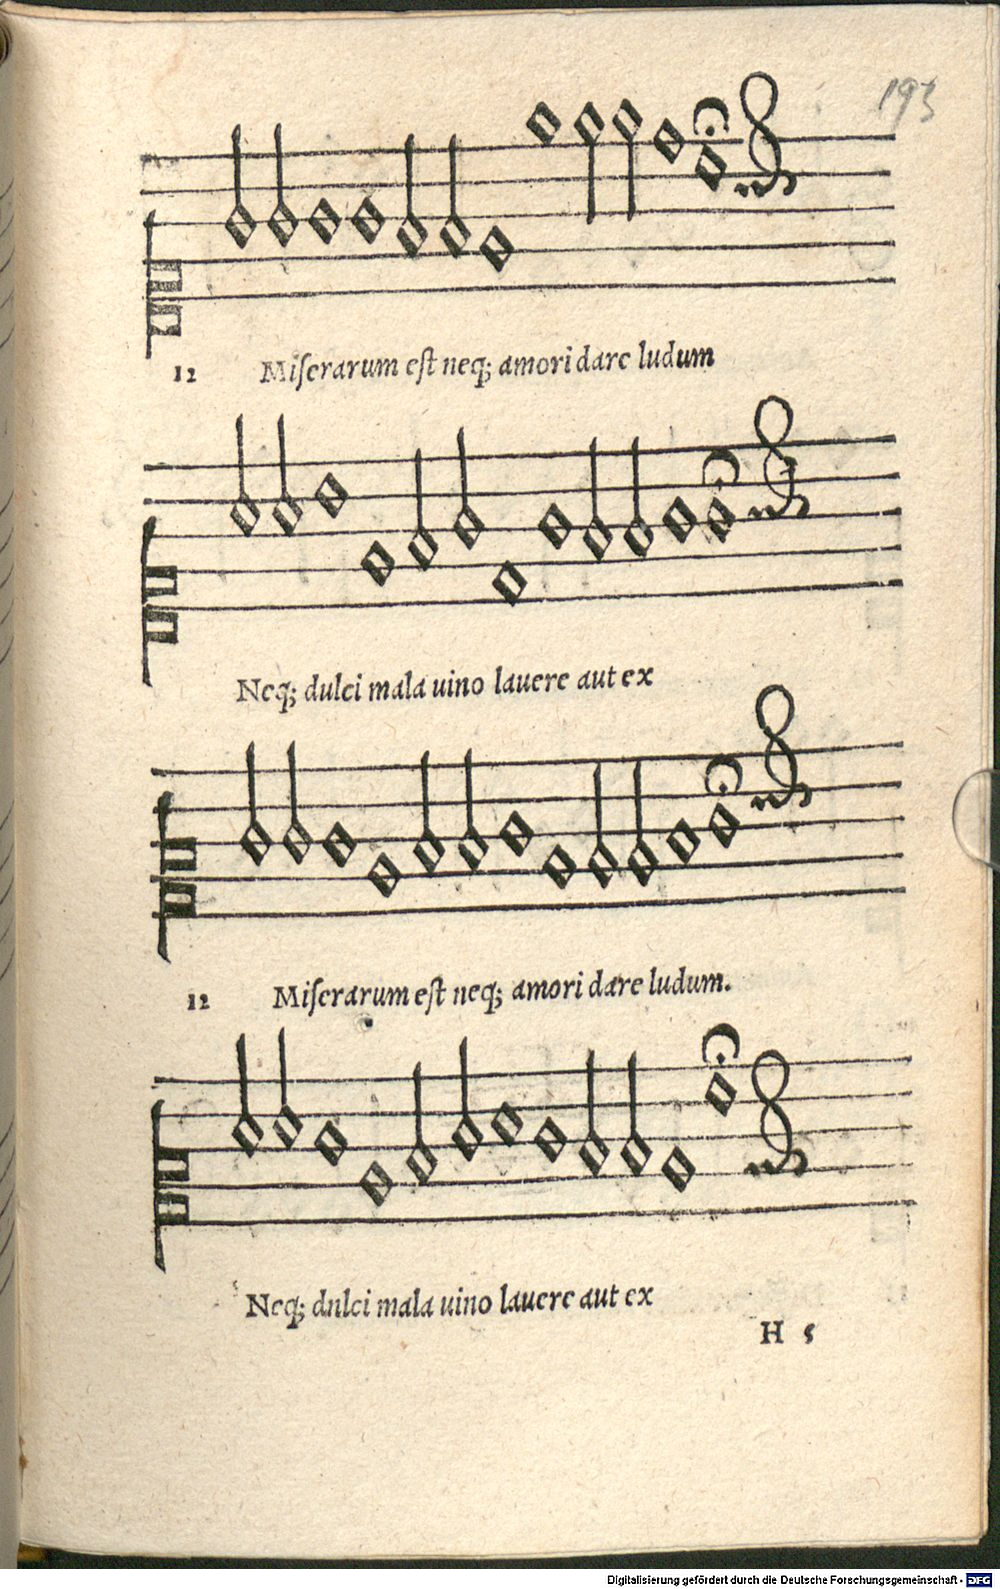 193
12 Miſerarum eſt neq; amori dare ludum
Neq; dulci mala uino lauere aut ex
12 Miſerarum eſt neq; amori dare ludum.
Neq; dnlci mala uino lauere aut ex
H 5
Digitalisierung gefördert durch die Deutsche Forschungsgemeinschaft - DFG